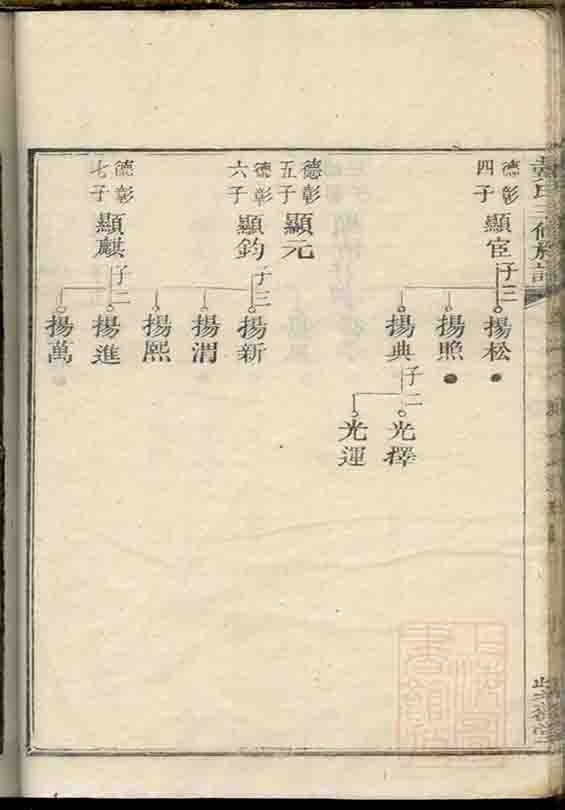 德彰
四子
顯宦
子三
揚松
揚煦
揚典
子二
光擇
光運
德彰
五子
顯元
德彰
六子
顯鈞
子三
揚新
揚渭
揚熙
德彰
七子
顯麒
子二
揚進
揚萬